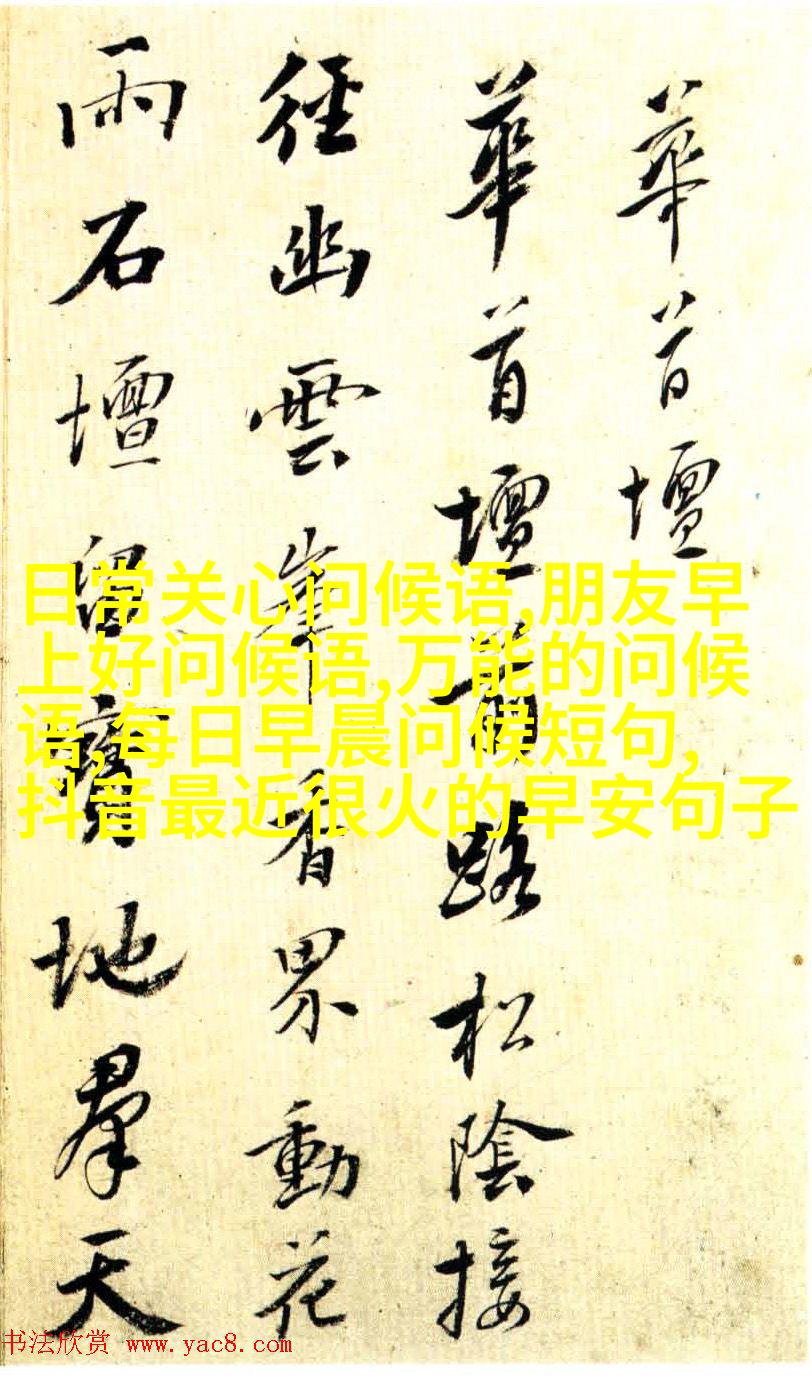 華首壇
華首壇前路松陰接
徑幽雲峯香界動花
雨石壇留寶地羣天
日常关心问候语,朋友早
上好问候语,万能的问候
语,每日早晨问候短句,
抖音最近很火的早安句子
书法欣赏 www.yac8.com